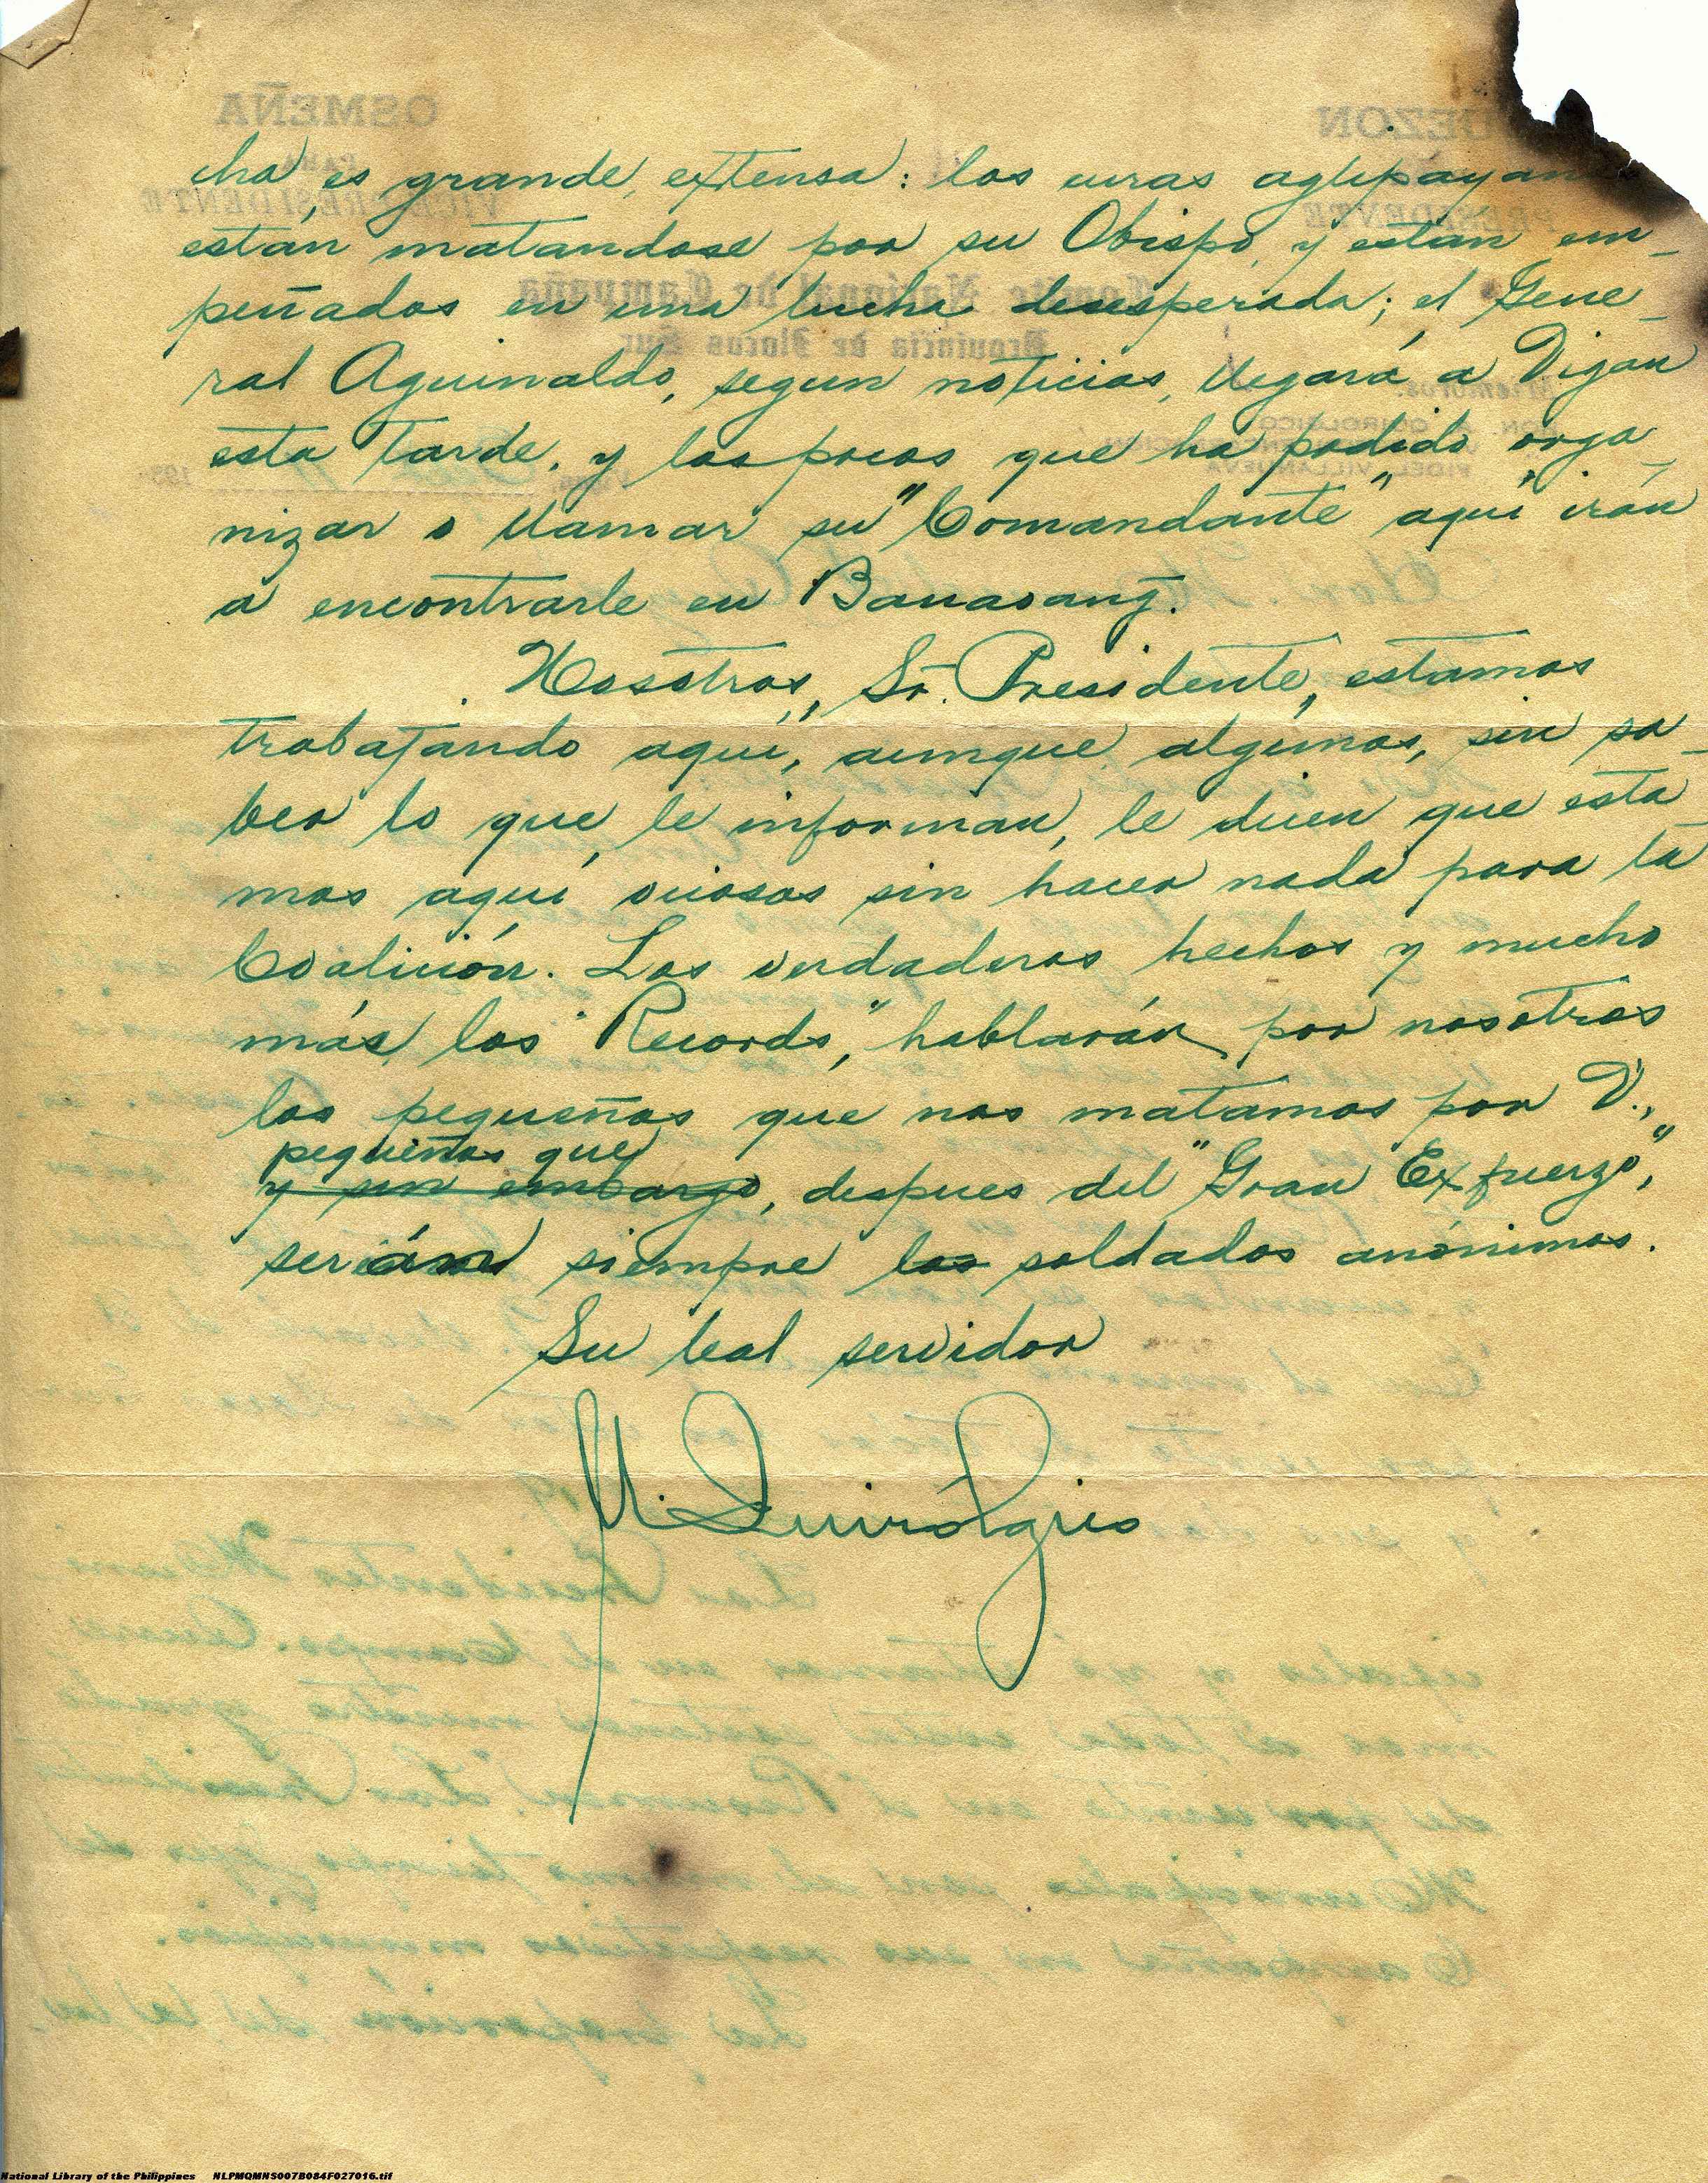 cha, es grande, extensa: los curas aglipayanos
están matándose por su Obispo, y están em-
peñados en una lucha desesperada; el Gene-
ral Aguinaldo, segun noticias, llegará a Vigan
esta tarde, y los pocos que ha podido orga-
nizar o llamar su "Comandante" aquí irán
a encontrarle en Banaoang.
Nosotros, Sr. Presidente, estamos
trabajando aquí, aunque algunos, sin sa-
ber lo que le informan, le dicen que esta-
mos aquí ociosos sin hacer nada para la
Coalición. Los verdaderos hechos y mucho
más los "Records," hablarán por nosotros
los pequeños que nos matamos por V.,
pequeños que
y sin embargo, despues del "Gran Exfuerzo,"
serán siempre los soldados anónimos.
Su leal servidor
M. Quirolgico
National Library of the Philippines NLPMQMNS007B084F027016.tif